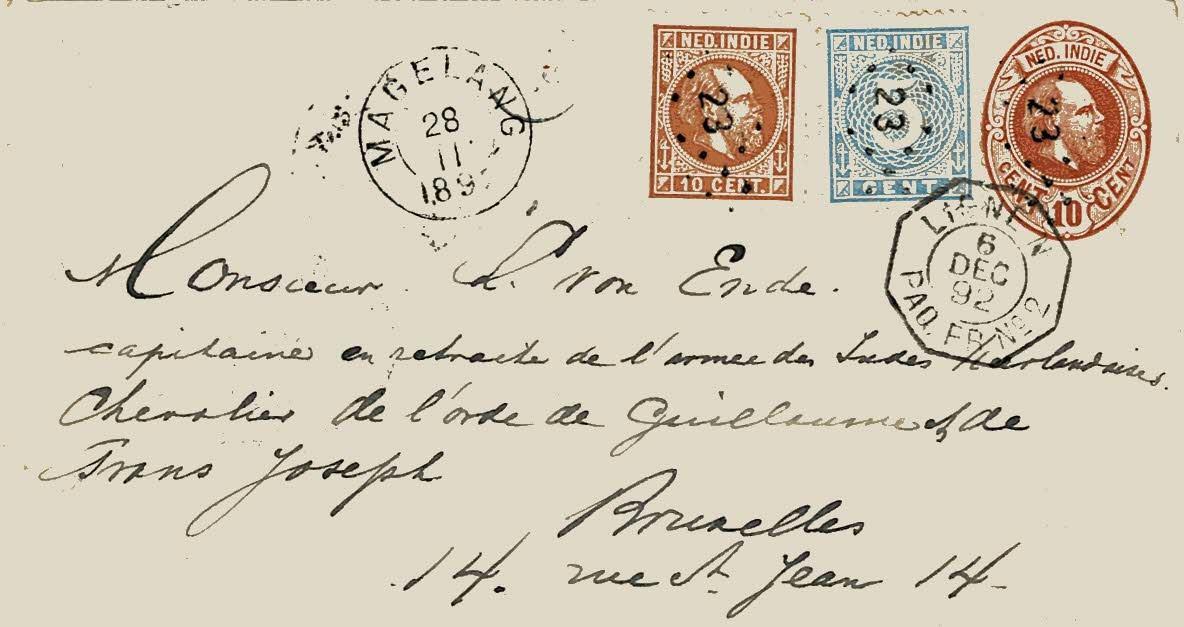 NED. INDIE
10 CENT.
23
NED. INDIE
5
CENT
23
NED. INDIE
CENT 10 CENT
23
MAGELANG
28
11
189
LIGNE N
6
DEC
92
PAQ. FR. No 2
Monsieur L. von Ende.
capitaine en retraite de l'armee des Indes Neerlandaises.
Chevalier de l'orde de Guillaume & de
Frans Joseph
Bruxelles
14. rue St Jean 14